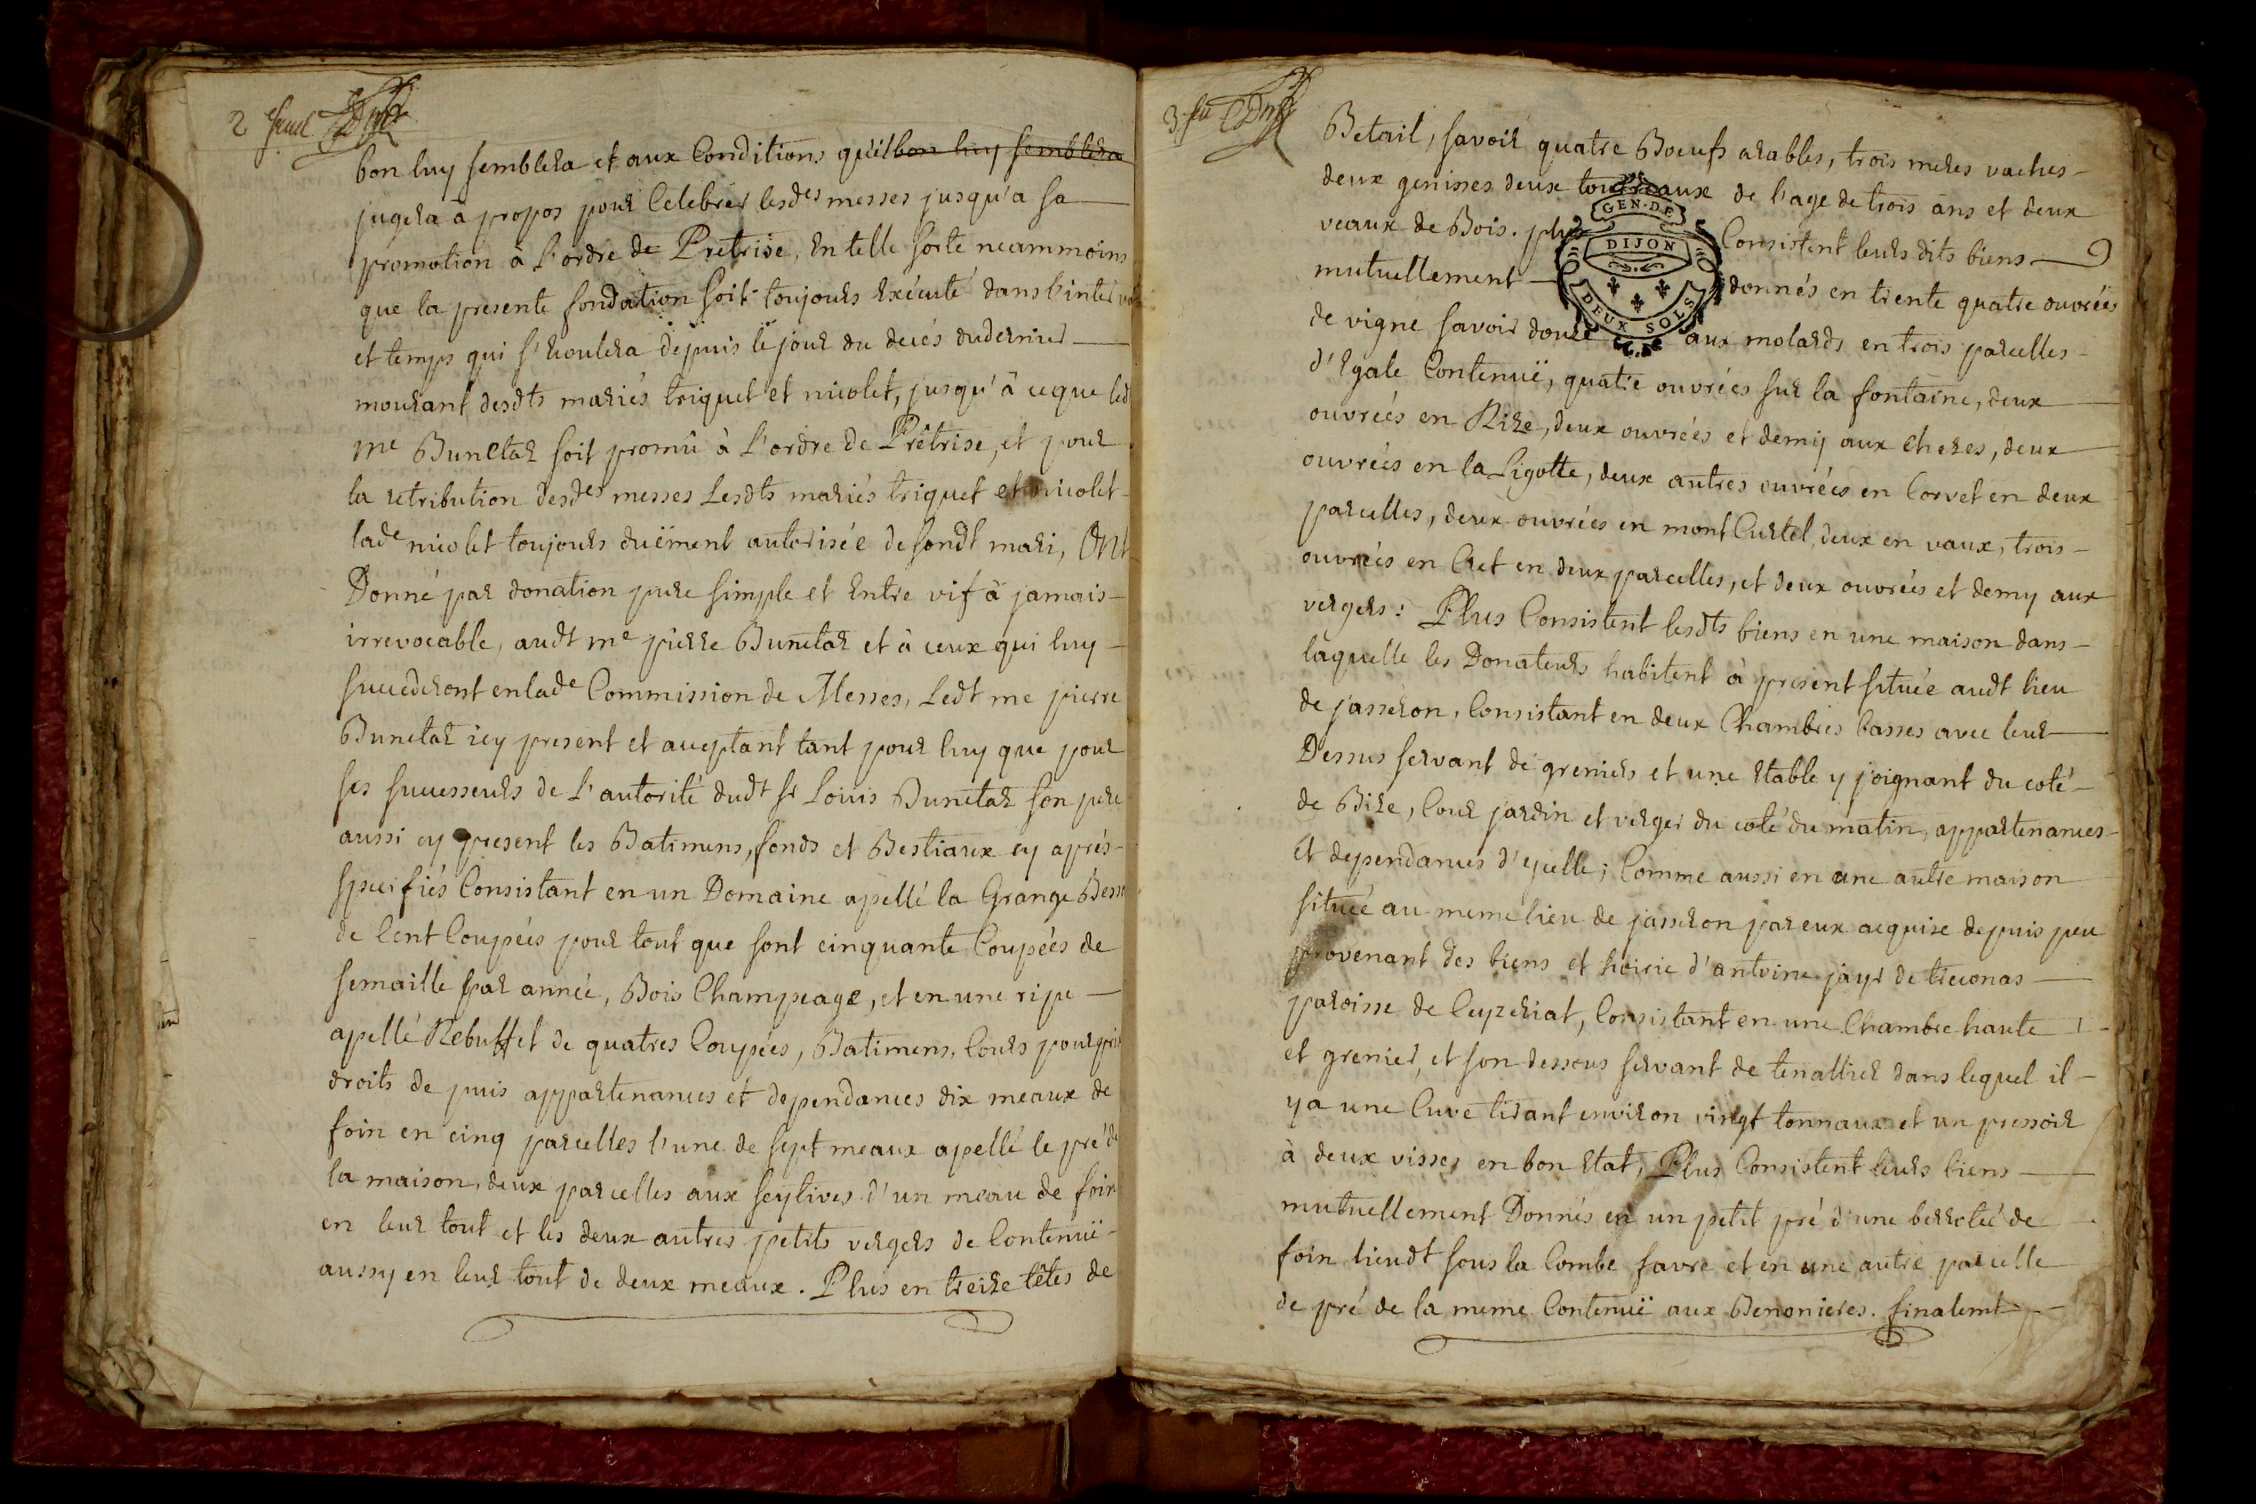 2 feuil
bon luy semblera et aux Conditions qu'il bon luy semblera
jugera à propos pour Celebrer lesdes messes jusqu'a sa
promotion à l'ordre de Pretrise, En telle sorte neammoins
que la presente fondation soit toujours Exécuté dans l'interval
et temps qui s'Ecoulera depuis le jour du decés du dernier
mourant desdts mariés triquet et nicolet, jusqu'à ceque led
me Bunetar soit promû à l'ordre de Prêtrise, et pour
la retribution desdes messes Lesdts mariés triquet et nicolet
lade nicolet toujours duëment autorisée de sondt mari, Ont
Donné par donation pure simple et Entre vif à jamais
irrevocable, audt me pierre Bunetar et à ceux qui luy
succederont enlade Commission de Messes, Ledt me pierre
Bunetar icy present et acceptant tant pour luy que pour
ses successeurs de l'autorité dudt Sr Louis Bunetar son pere
aussi cy present les Batimens, fonds et Bestiaux cy aprés
specifiés Consistant en un Domaine apellé la Grange
de Cent Coupées pour tout que sont cinquante Coupées de
semaille par année, Bois Champeage, et en une
apellé Rebuffet de quatres Coupées, Batimens, Cours
droits de puis appartenances et dependances dix meaux de
foin en cinq parcelles l'une de sept meaux apellé le pré de
la maison, deux parcelles aux seytives d'un meau de foin
en leur tout et les deux autres petits vergers de Contenuë
aussy en leur tout de deux meaux. Plus en treize têtes de
3
Betail, savoir quatre Boeufs arables, trois meres vaches
deux genisses deux taureaux de l'age de trois ans et deux
veaux de Bois. plus Consistent leurs dits biens
mutuellement donnés en trente quatre ouvrées
de vigne savoir douze aux molards en trois parcelles
d'Egale Contenuë, quatre ouvrées sur la fontaine, deux
ouvrées en Rize, deux ouvrées et demy aux Chezes, deux
ouvrées en la Ligotte, deux autres ouvrées en Corvet en deux
parcelles, deux ouvrées en mont Curtel, deux en vaux, trois
ouvrées en Cret en deux parcelles, et deux ouvrées et demy aux
vergers: Plus Consistent lesdts biens en une maison dans
laquelle les Donateurs habitent à present située audt lieu
de jasseron, Consistant en deux Chambres basses avec leur
Dessus servant de greniers et une Etable y joignant du coté
de Bize, Cour jardin et verger du coté du matin, appartenances
et dependances d'ycelle; Comme aussi en une autre maison
située au meme lieu de jasseron par eux acquise depuis peu
provenant des biens et hoirie d'antoine jayr de treconas
paroisse de Ceyzeriat, Consistant en une Chambre haute
et grenier, et son dessous servant de tenallier dans lequel il
y a une Cuve tirant environ vingt tonnaux et un pressoir
à deux visses en bon Etat, Plus Consistent leurs biens
mutuellement Donnés en un petit pré d'une berrotée de
foin lieudt sous la Combe favre et en une autre parcelle
de pré de la meme Contenuë aux Benonieres. finalemt
GEN·DE
DIJON
DEUX SOLS